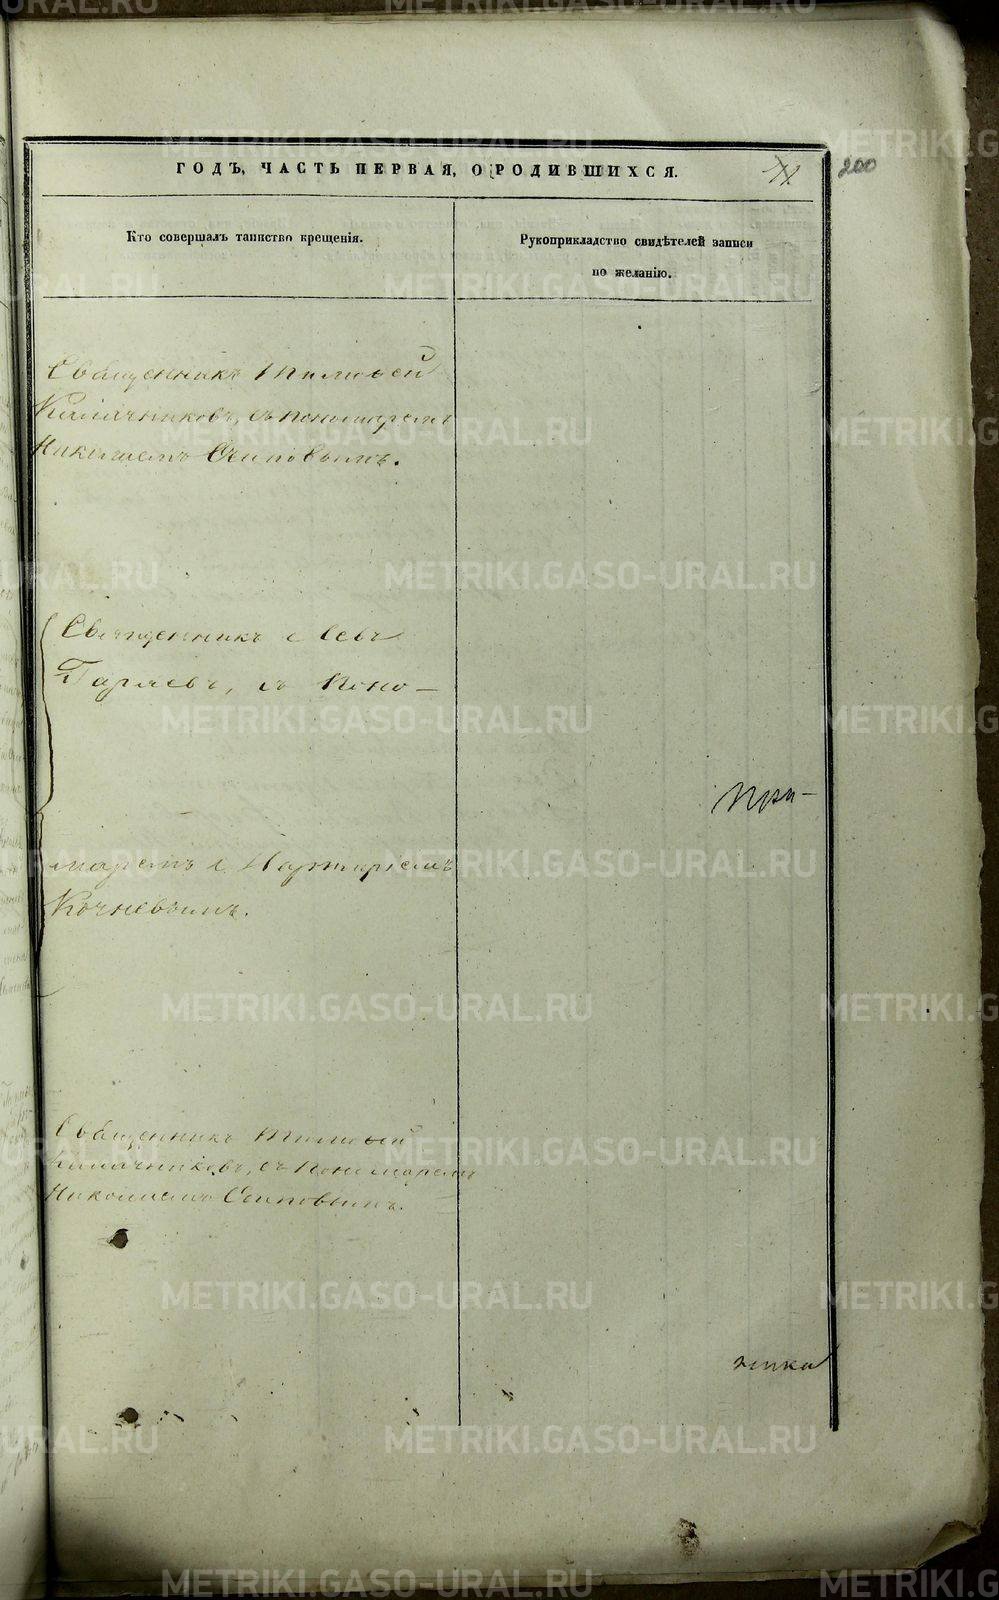 ГОДЪ, ЧАСТЬ ПЕРВАЯ, О РОДИВШИХСЯ.
200
Кто совершалъ таинство крещенія.
Рукоприкладство свидѣтелей записи
по желанію.
Священникъ Тимофей
съ Пономаремъ
Николаемъ Осиповымъ.
Священникъ Левъ
Гаряевъ, съ Поно-
маремъ
Кочневымъ.
Священникъ Тимофей
съ Пономаремъ
Николаемъ Осиповымъ.
METRIKI.GASO-URAL.RU